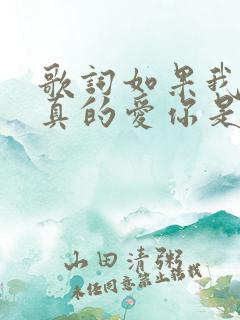 歌詞如果我
真的愛你是
山田清粥
未经同意禁止转载